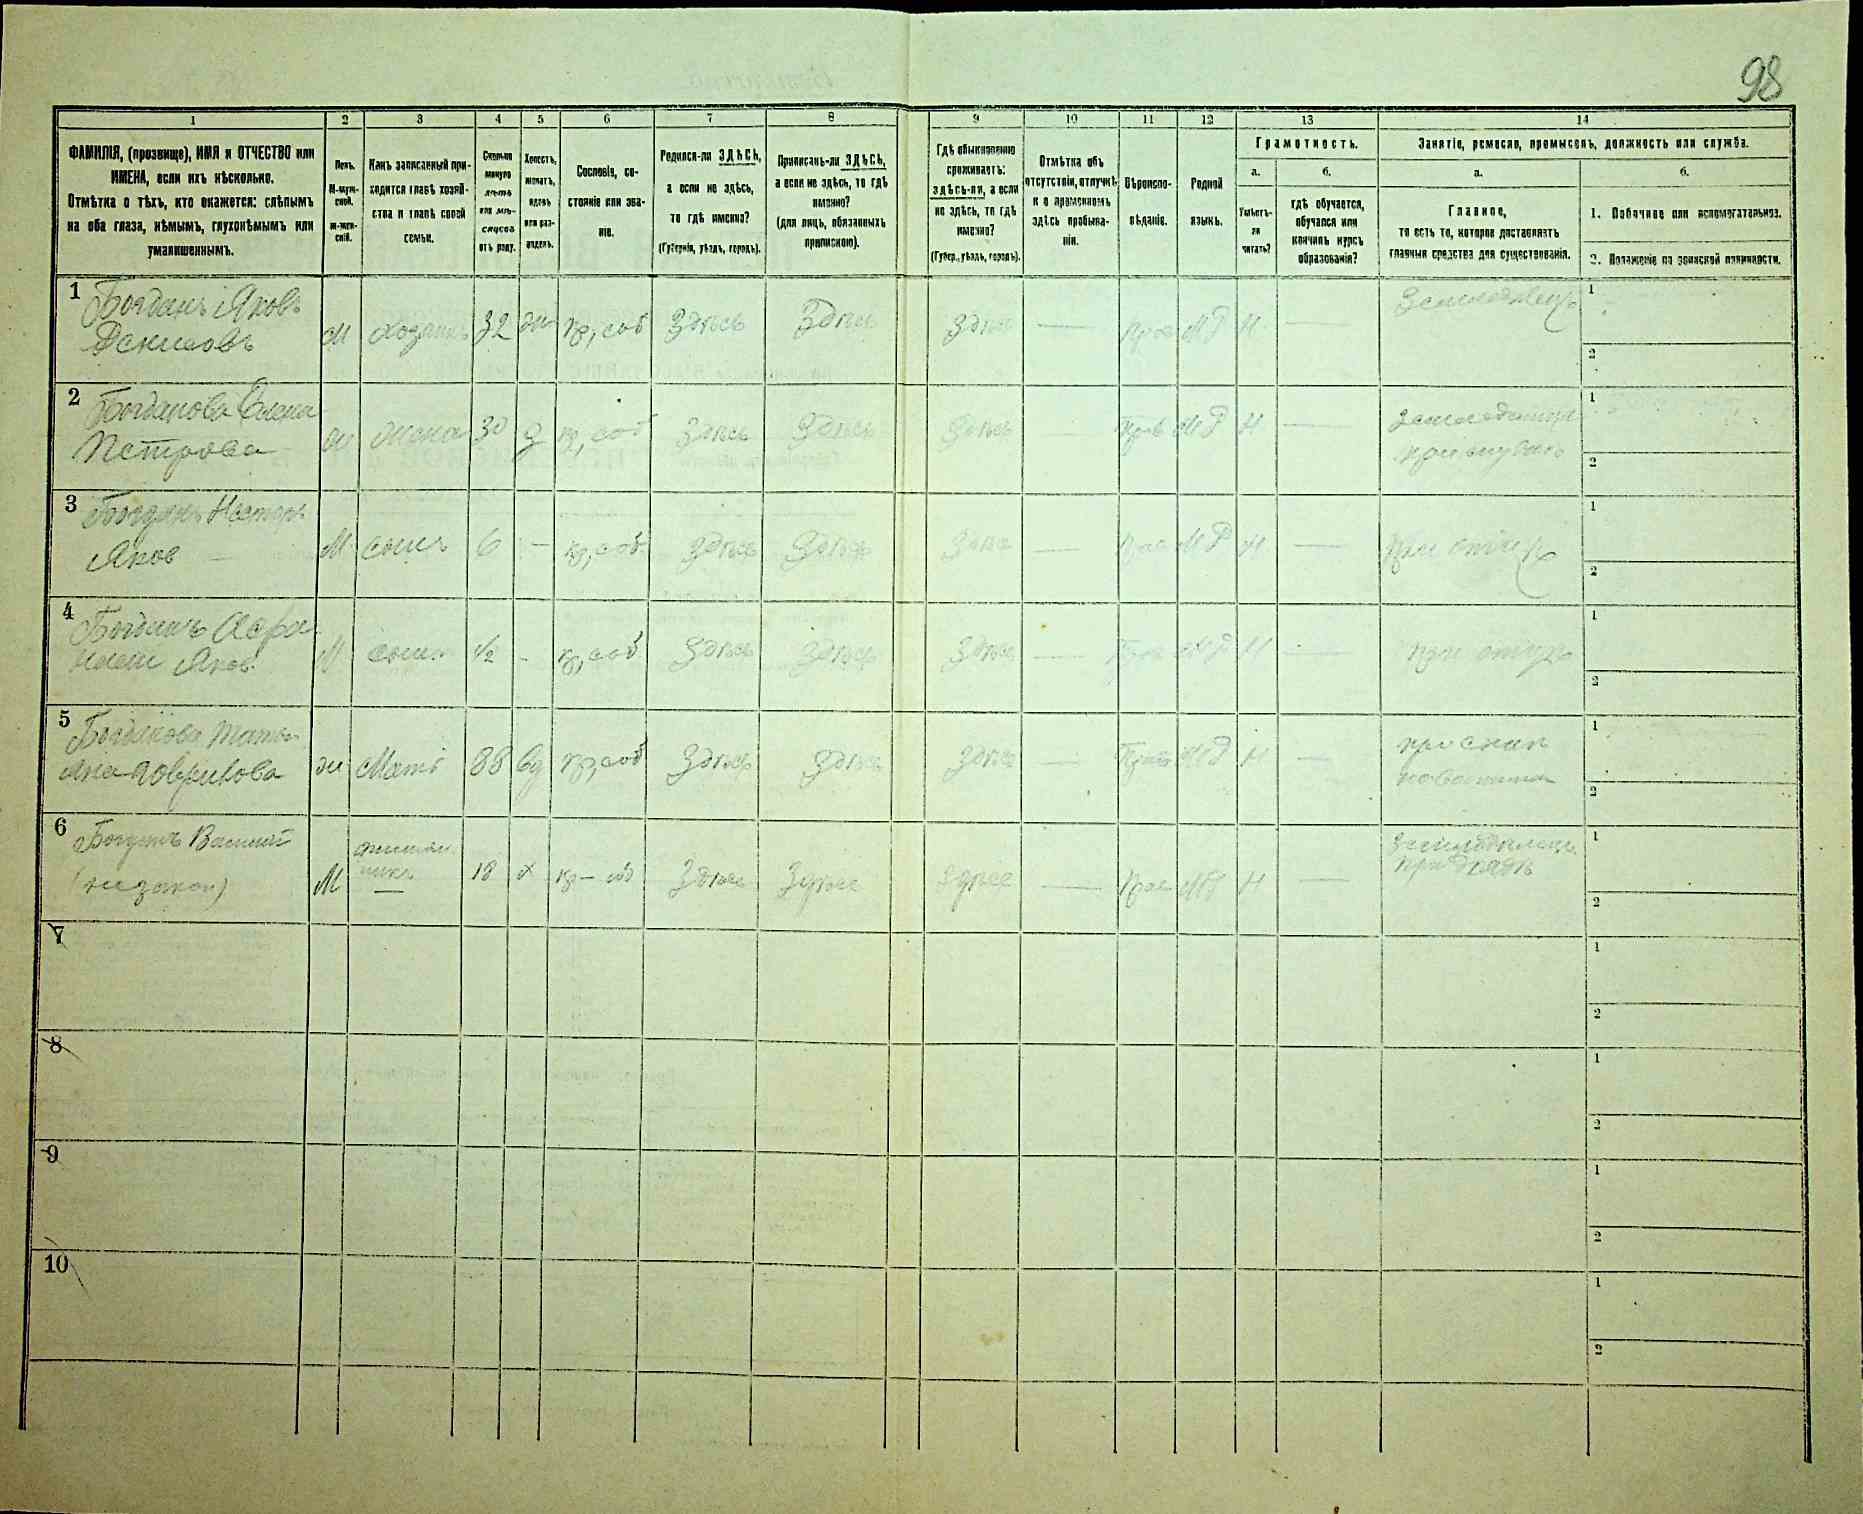 98
1 2 3 4 5 6 7 8 9 10 11 12 13 14
ФАМИЛІЯ, (прозвище), ИМЯ и ОТЧЕСТВО или
ИМЕНА, если ихъ нѣсколько.
Отмѣтка о тѣхъ, кто окажется: слѣпымъ
на оба глаза, нѣмымъ, глухонѣмымъ или
умалишеннымъ.
Полъ.
М-муж-
ской.
ж-жен-
скій.
Какъ записанный при-
ходится главѣ хозяй-
ства и главѣ своей
семьи.
Сколько
минуло
лѣтъ
или мѣ-
сяцевъ
отъ роду.
Холостъ,
женатъ,
вдовъ
или раз-
веденъ.
Сословіе, со-
стояніе или зва-
ніе.
Родился-ли ЗДѢСЬ,
а если не здѣсь,
то гдѣ именно?
(Губернія, уѣздъ, городъ).
Приписанъ-ли ЗДѢСЬ,
а если не здѣсь, то гдѣ
именно?
(для лицъ, обязанныхъ
припискою).
Гдѣ обыкновенно
проживаетъ:
здѣсь-ли, а если
не здѣсь, то гдѣ
именно?
(Губер., уѣздъ, городъ).
Отмѣтка объ
отсутствіи, отлучкѣ
и о временномъ
здѣсь пребыва-
ніи.
Вѣроиспо-
вѣданіе.
Родной
языкъ.
Грамотность.
а.
Умѣетъ-
ли
читать?
б.
гдѣ обучается,
обучался или
кончилъ курсъ
образованія?
Занятіе, ремесло, промыселъ, должность или служба.
а.
Главное,
то есть то, которое доставляетъ
главныя средства для существованія.
б.
1. Побочное или вспомогательное.
2. Положеніе по воинской повинности.
1 Богданъ Яковъ
Денисовъ М хозяинъ 32 жн кр, соб Здѣсь Здѣсь Здѣсь — Прав МР Н — Земледѣлецъ 1
2
2 Богданова Елена
Петрова ж жена 30 з кр, соб Здѣсь Здѣсь Здѣсь — Прав МР Н — 1
2
3 Богданъ Несторъ
Яков М сынъ 6 - кр, соб Здѣсь Здѣсь Здѣсь — Прав МР Н — при отцѣ 1
2
4 Богданъ Афа-
насій Яков М сынъ 1/2 - кр, соб Здѣсь Здѣсь Здѣсь — Прав МР Н — при отцѣ 1
2
5 Богданова Татья-
на Гаврилова ж Мать 88 вд кр, соб Здѣсь Здѣсь Здѣсь — Прав МР Н — 1
2
6 Богданъ Василій
(незакон) М 18 х кр - соб Здѣсь Здѣсь Здѣсь — Прав МР Н — 1
2
7 1
2
8 1
2
9 1
2
10 1
2